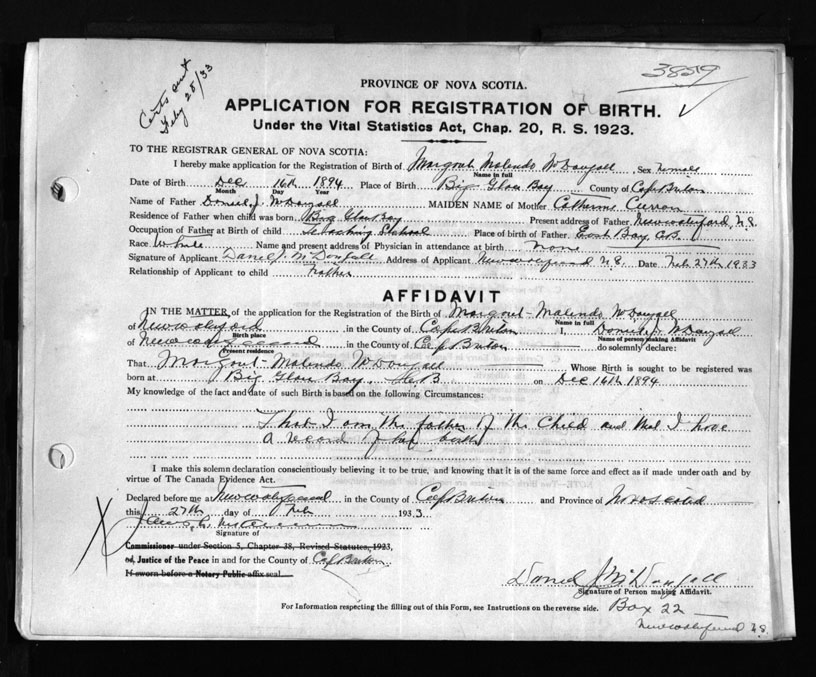 Certs out
Feby 28/33
3829
PROVINCE OF NOVA SCOTIA.
APPLICATION FOR REGISTRATION OF BIRTH.
Under the Vital Statistics Act, Chap. 20, R. S. 1923.
TO THE REGISTRAR GENERAL OF NOVA SCOTIA:
I hereby make application for the Registration of Birth of Margaret Malinda McDougall Sex Female
Name in full
Date of Birth Dec 16th 1894 Place of Birth Big Glace Bay County of Cape Breton
Month Day Year
Name of Father Daniel J. McDougall MAIDEN NAME of Mother Catherine Curran
Residence of Father when child was born Big Glace Bay Present address of Father New Waterford, N.S.
Occupation of Father at Birth of child Teaching School Place of birth of Father East Bay C.B.
Race White Name and present address of Physician in attendance at birth none
Signature of Applicant Daniel J. McDougall Address of Applicant New Waterford N.S. Date Feb 27th 1933
Relationship of Applicant to child Father
AFFIDAVIT
IN THE MATTER of the application for the Registration of the Birth of Margaret Malinda McDougall
Name in full
of New Waterford in the County of Cape Breton I, Daniel J. McDougall
Birth place Name of person making Affidavit
of New Waterford in the County of Cape Breton do solemnly declare:
Present residence
That Margaret Malinda McDougall Whose Birth is sought to be registered was
born at Big Glace Bay, C.B. on Dec 16th 1894
My knowledge of the fact and date of such Birth is based on the following Circumstances:
That I am the father of the Child and that I have
a record of her birth
I make this solemn declaration conscientiously believing it to be true, and knowing that it is of the same force and effect as if made under oath and by
virtue of The Canada Evidence Act.
Declared before me at New Waterford in the County of Cape Breton and Province of Nova Scotia
this 27th day of Feb 1933.
Signature of
Commissioner under Section 5, Chapter 38, Revised Statutes, 1923,
or, Justice of the Peace in and for the County of Cape Breton
If sworn before a Notary Public affix seal
Daniel J. McDougall
Signature of Person making Affidavit.
For Information respecting the filling out of this Form, see Instructions on the reverse side. Box 22
New Waterford N.S.